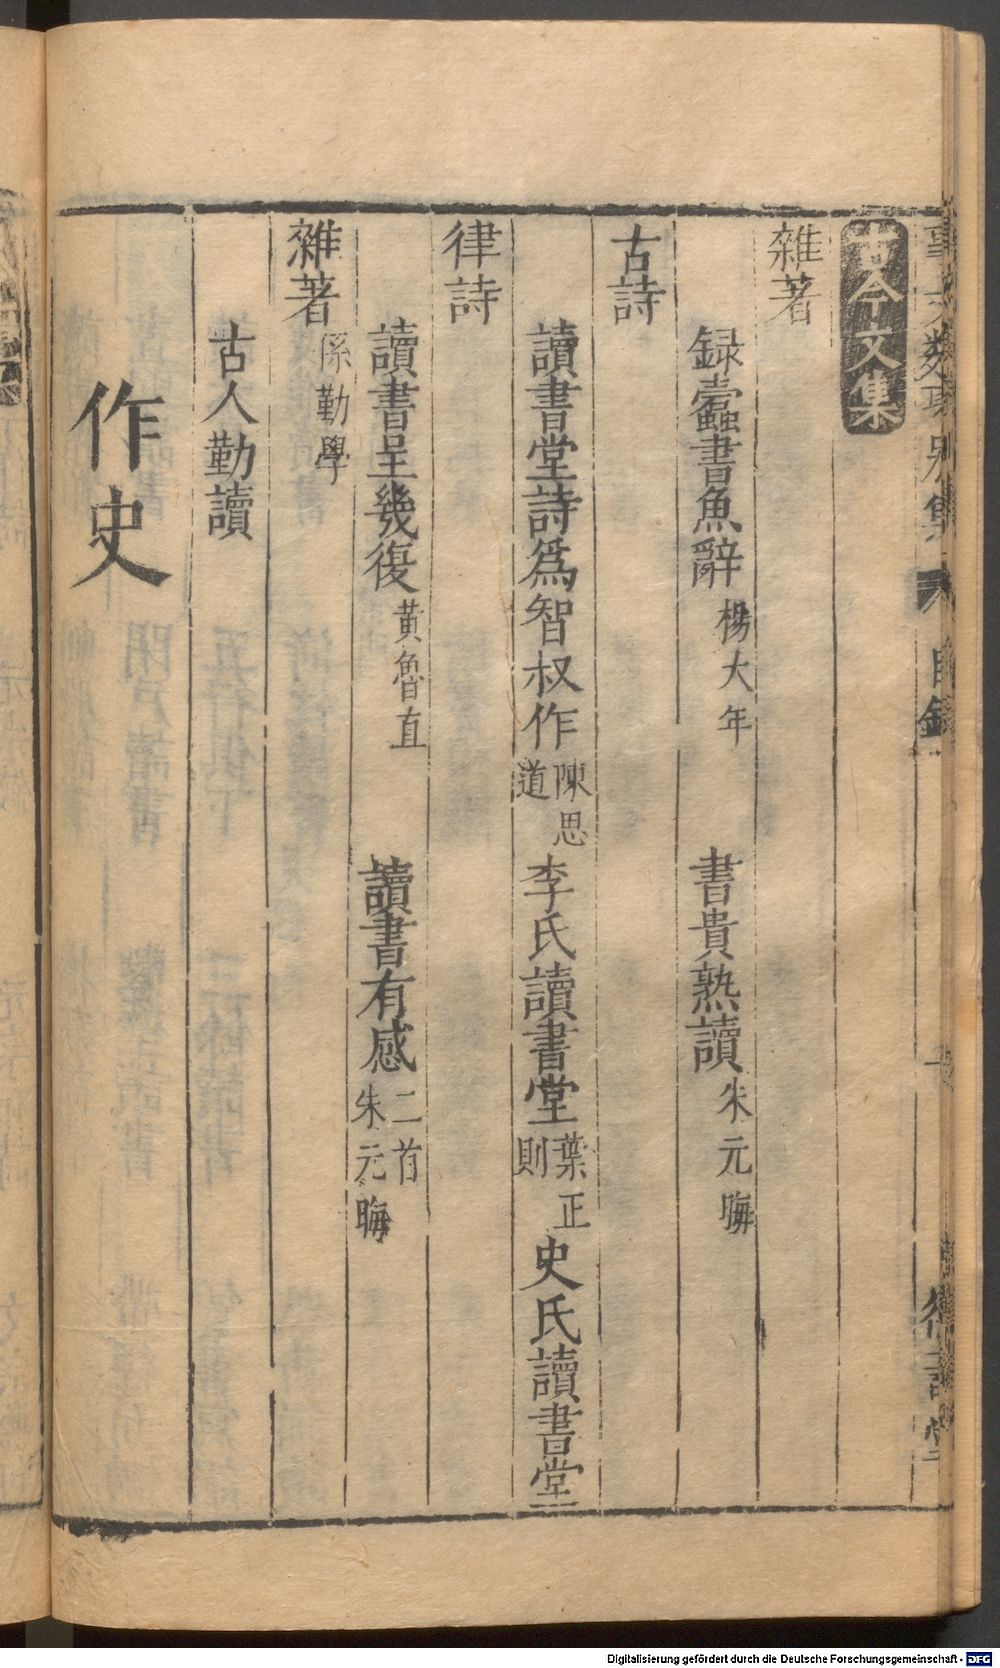 古今文集
雜著
録蠹書魚辭 楊大年 書貴熟讀 朱元晦
古詩
讀書堂詩爲智叔作 陳思道 李氏讀書堂 葉正則 史氏讀書堂
律詩
讀書呈幾復 黃魯直 讀書有感 二首 朱元晦
雜著 係勤學
古人勤讀
作史
Digitalisierung gefördert durch die Deutsche Forschungsgemeinschaft - DFG